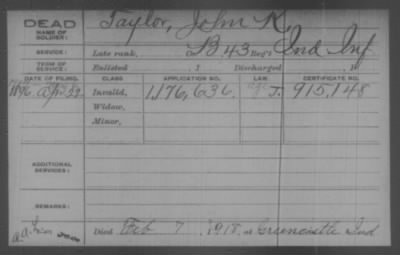 DEAD
NAME OF SOLDIER: Taylor, John R.
SERVICE: Late rank, Co. B. 43 Reg't Ind Inf.
TERM OF SERVICE: Enlisted , 1 Discharged , 1
DATE OF FILING. CLASS APPLICATION NO. LAW. CERTIFICATE NO.
1896 Apr 22 Invalid, 1,176,636. J. 915.148
Widow,
Minor,
ADDITIONAL SERVICES:
REMARKS:
Died Feb 7, 1918, at Greencastle Ind